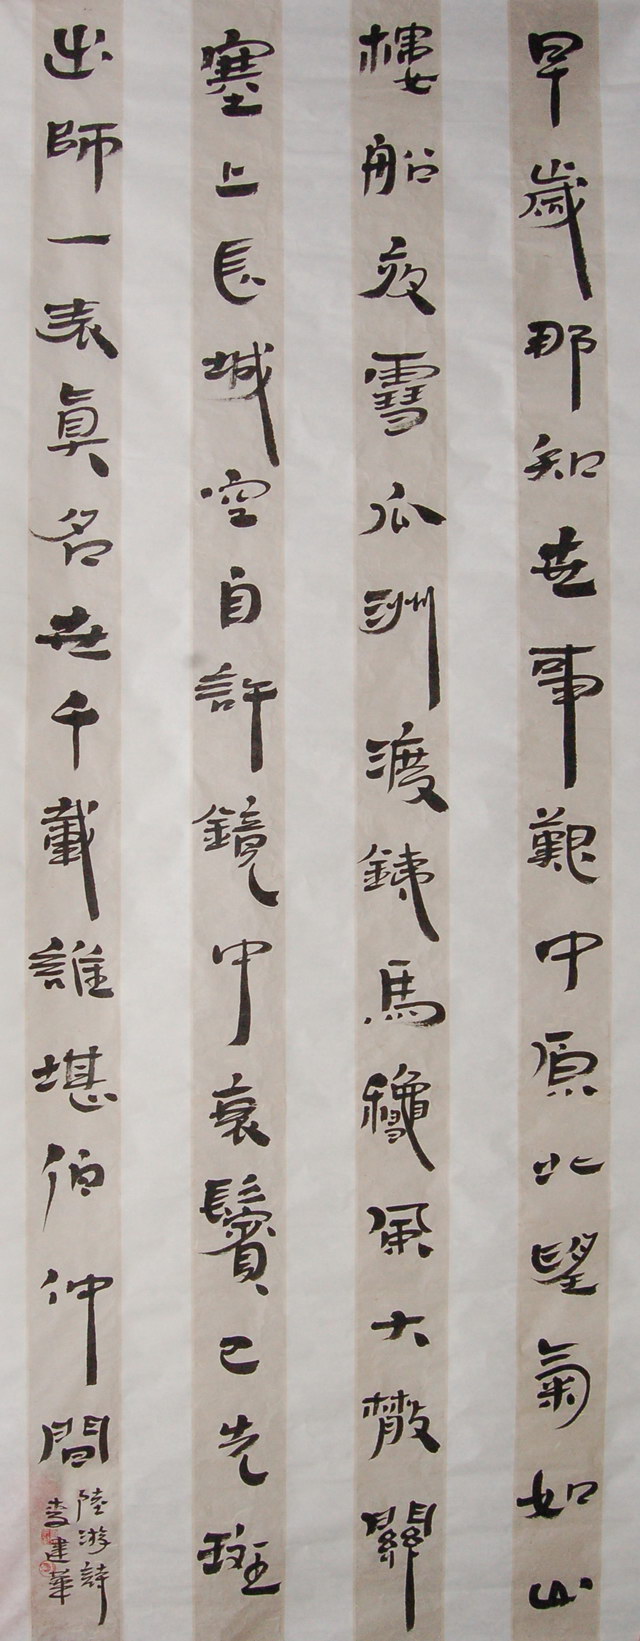 早歲那知世事艱中原北望氣如山
樓船夜雪瓜洲渡鐵馬穐風大散關
塞上長城空自許鏡中衰鬢已先斑
出師一表真名世千載誰堪伯仲間
陸游詩
李建華